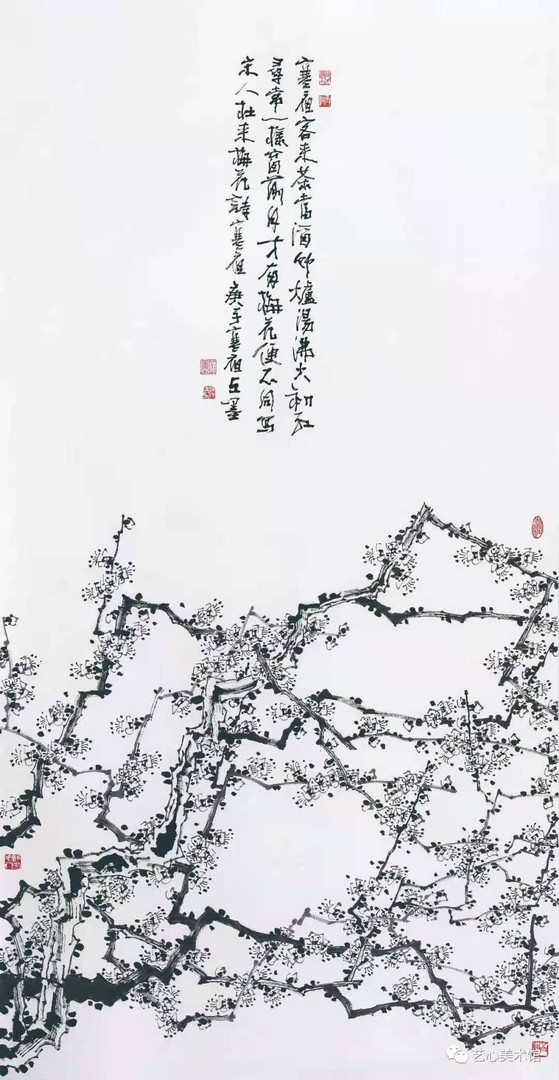 寒夜客来茶当酒竹炉汤沸火初红
寻常一样窗前月才有梅花便不同写
宋人杜来梅花诗寒夜庚子寒夜立墨
艺心美术馆